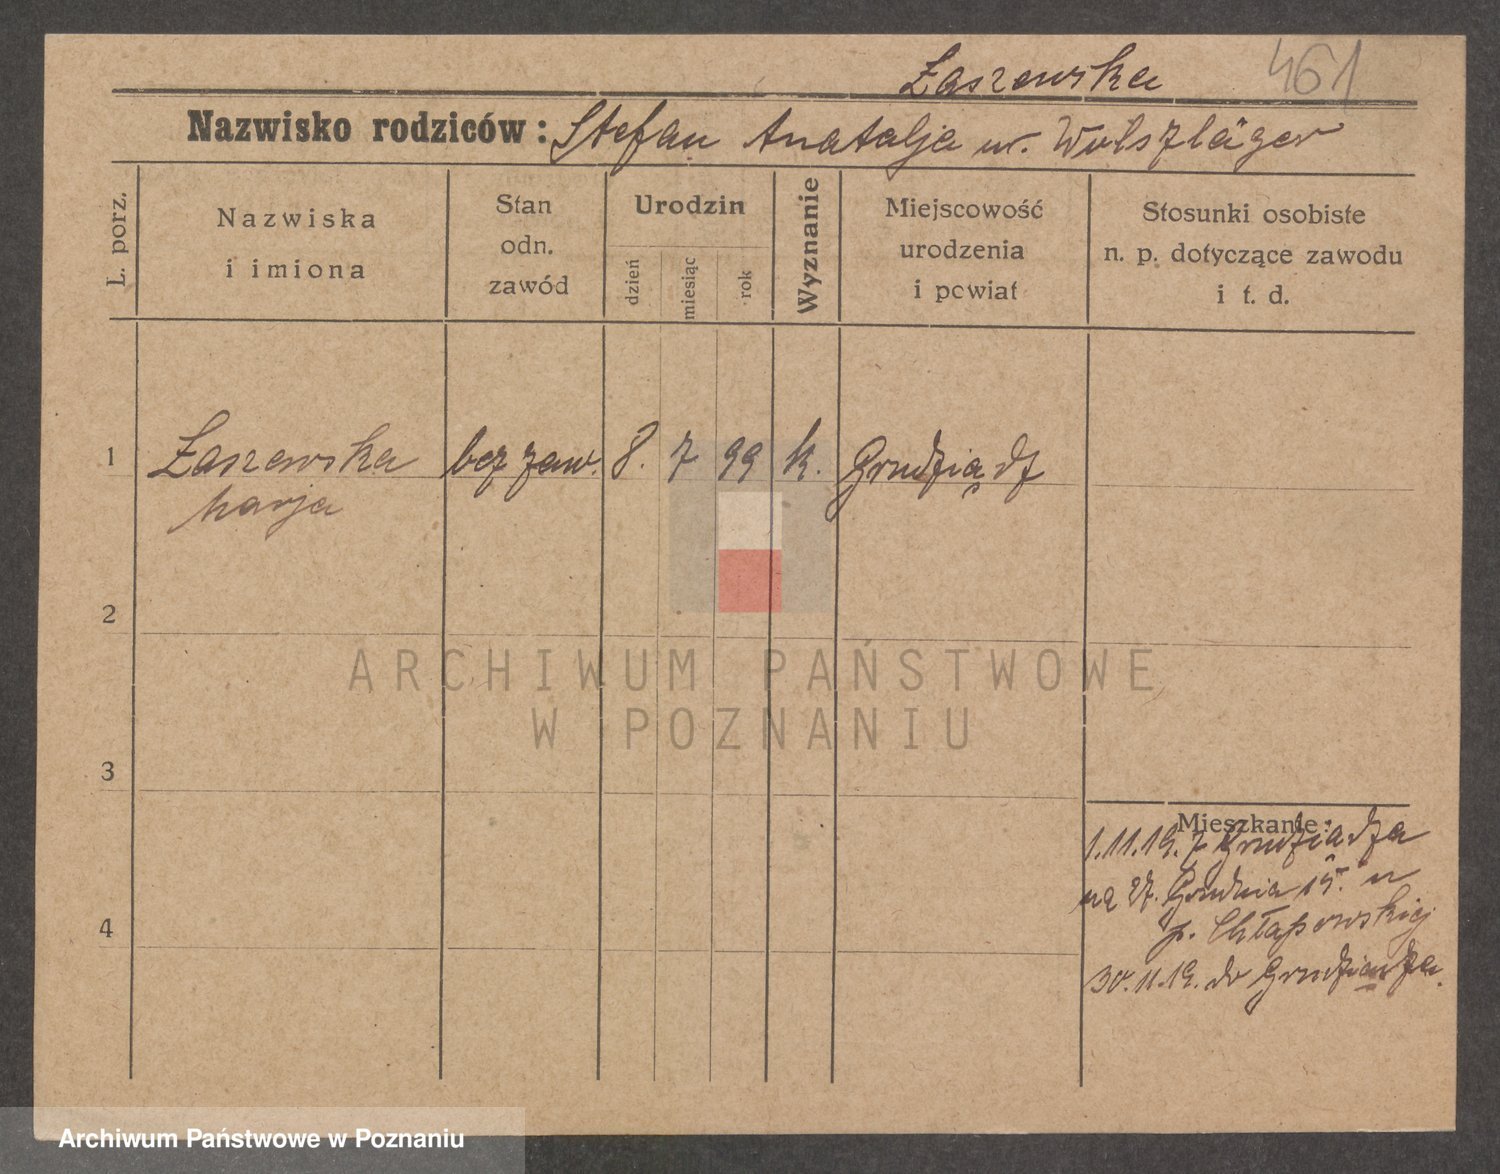 Łaszewska 461
Nazwisko rodziców: Stefan Anatalja ur. Wolszläger
L. porz.
Nazwiska
i imiona
Stan
odn.
zawód
Urodzin
dzień
miesiąc
rok
Wyznanie
Miejscowość
urodzenia
i powiat
Stosunki osobiste
n. p. dotyczące zawodu
i t. d.
1 Łaszewska bez zaw. 8. 7 99 k. Grudziądz
Marja
2
ARCHIWUM PAŃSTWOWE
W POZNANIU
3
Mieszkanie:
1.11.19. z Grudziądza
na 27. Grudnia 15. u
p. Chłapowskiej
4
30.11.19. do Grudziądza.
Archiwum Państwowe w Poznaniu